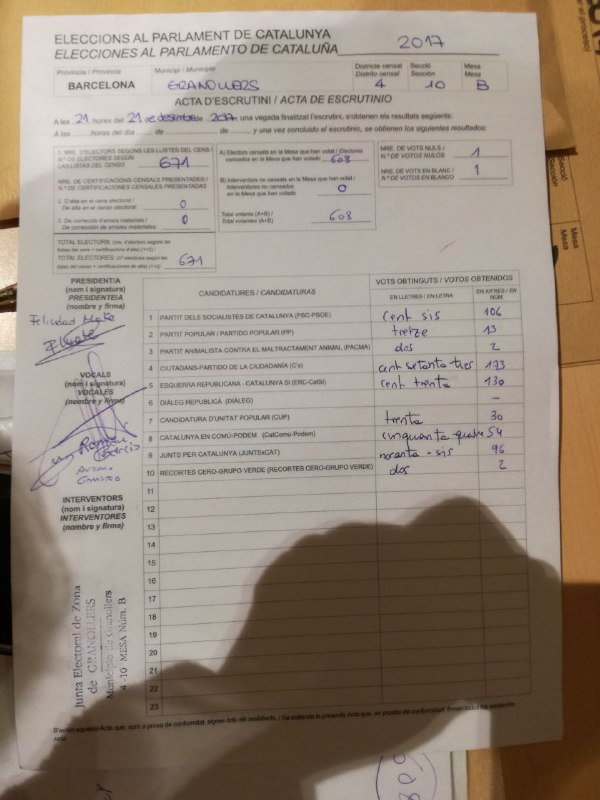 ELECCIONS AL PARLAMENT DE CATALUNYA
ELECCIONES AL PARLAMENTO DE CATALUÑA 2017
Província / Provincia Municipi / Municipio Districte censal Secció Mesa
Distrito censal Sección Mesa
BARCELONA GRANOLLERS 4 10 B
ACTA D'ESCRUTINI / ACTA DE ESCRUTINIO
A les 21 hores del 21 de desembre de 2017 una vegada finalitzat l'escrutini, s'obtenen els resultats següents:
A las horas del día de de y una vez concluido el escrutinio, se obtienen los siguientes resultados:
1. NRE. D'ELECTORS SEGONS LES LLISTES DEL CENS /
N.º DE ELECTORES SEGÚN
LAS LISTAS DEL CENSO 671
NRE. DE CERTIFICACIONS CENSALS PRESENTADES /
N.º DE CERTIFICACIONES CENSALES PRESENTADAS
2. D'alta en el cens electoral /
De alta en el censo electoral 0
3. De correcció d'errors materials /
De corrección de errores materiales 0
TOTAL ELECTORS (nre. d'electors segons les
llistes del cens + certificacions d'alta) (1+2) /
TOTAL ELECTORES (n.º electores según las
listas del censo + certificaciones de alta) (1+2) 671
A) Electors censats en la Mesa que han votat / Electores
censados en la Mesa que han votado 608
B) Interventors no censats en la Mesa que han votat /
Interventores no censados
en la Mesa que han votado 0
Total votants (A+B) /
Total votantes (A+B) 608
NRE. DE VOTS NULS /
N.º DE VOTOS NULOS 1
NRE. DE VOTS EN BLANC /
N.º DE VOTOS EN BLANCO 1
PRESIDENT/A
(nom i signatura)
PRESIDENTE/A
(nombre y firma)
Felicidad
VOCALS
(nom i signatura)
VOCALES
(nombre y firma)
Antonio
INTERVENTORS
(nom i signatura)
INTERVENTORES
(nombre y firma)
Junta Electoral de Zona
de GRANOLLERS
Municipio de Granollers
4 -10 MESA Núm. B
CANDIDATURES / CANDIDATURAS VOTS OBTINGUTS / VOTOS OBTENIDOS
EN LLETRES / EN LETRA EN XIFRES / EN NÚM.
1 PARTIT DELS SOCIALISTES DE CATALUNYA (PSC-PSOE) cent sis 106
2 PARTIT POPULAR / PARTIDO POPULAR (PP) tretze 13
3 PARTIT ANIMALISTA CONTRA EL MALTRACTAMENT ANIMAL (PACMA) dos 2
4 CIUTADANS-PARTIDO DE LA CIUDADANÍA (C's) cent setanta tres 173
5 ESQUERRA REPUBLICANA - CATALUNYA SÍ (ERC-CatSí) cent trenta 130
6 DIÀLEG REPUBLICÀ (DIÀLEG) -
7 CANDIDATURA D'UNITAT POPULAR (CUP) trenta 30
8 CATALUNYA EN COMÚ-PODEM (CatComú-Podem) cinquanta quatre 54
9 JUNTS PER CATALUNYA (JUNTSxCAT) noranta - sis 96
10 RECORTES CERO-GRUPO VERDE (RECORTES CERO-GRUPO VERDE) dos 2
11
12
13
14
15
16
17
18
19
20
21
22
23
S'estén aquesta Acta que, com a prova de conformitat, signen tots els assistents. / Se extiende la presente Acta que, en prueba de conformidad, firman todos los asistentes
Secció
Sección
Mesa
Mesa